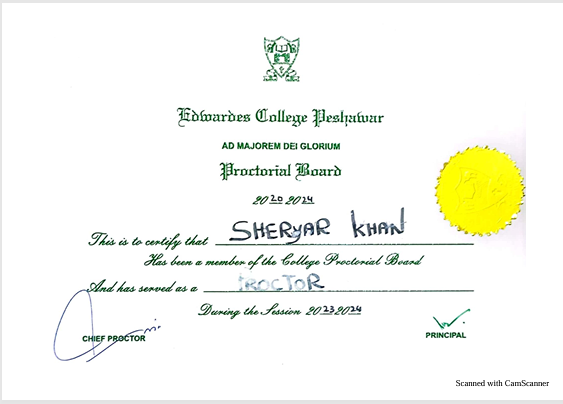 Edwardes College Peshawar
AD MAJOREM DEI GLORIUM
Proctorial Board
2020 2024
This is to certify that SHERYAR KHAN
Has been a member of the College Proctorial Board
And has served as a PROCTOR
During the Session 2023 2024
CHIEF PROCTOR
PRINCIPAL
Scanned with CamScanner